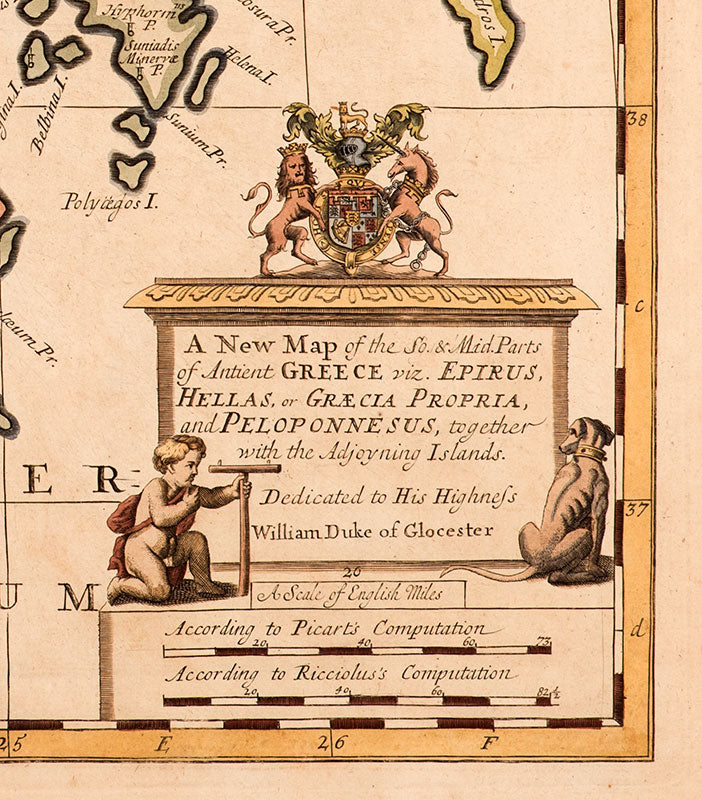 Hyphorm us
P.
Suniadis
Minervæ
P.
osura Pr.
Helena I.
dros I.
gina I.
Belbina I.
Sunium Pr.
Polyægos I.
læum Pr.
38
c
37
d
A New Map of the So. & Mid. Parts
of Antient GREECE viz. EPIRUS,
HELLAS, or GRÆCIA PROPRIA,
and PELOPONNESUS, together
with the Adjoyning Islands.
Dedicated to His Highneſs
William Duke of Glocester
E R
U M
26
A Scale of English Miles
According to Picart's Computation
20 40 60 73
According to Ricciolus's Computation
20 40 60 82 1/2
25 E 26 F